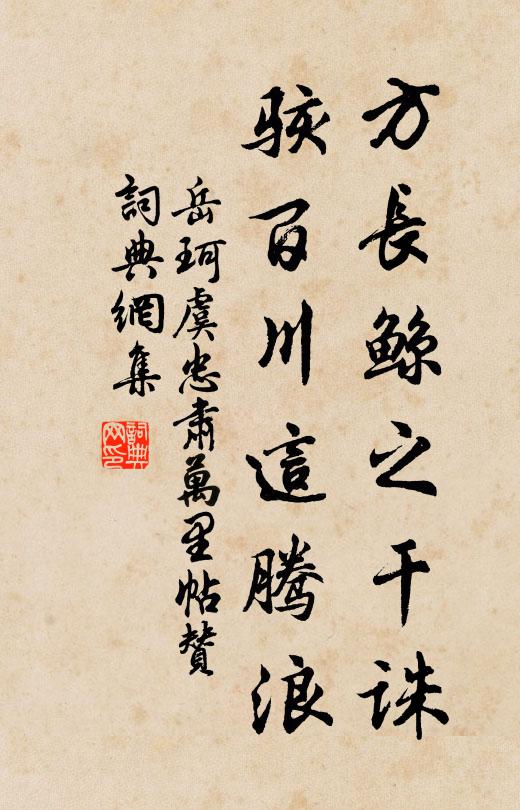 方長鯨之干誅
駭百川這騰浪
岳珂虞忠肅萬里帖贊
詞典網集
詞典
网印